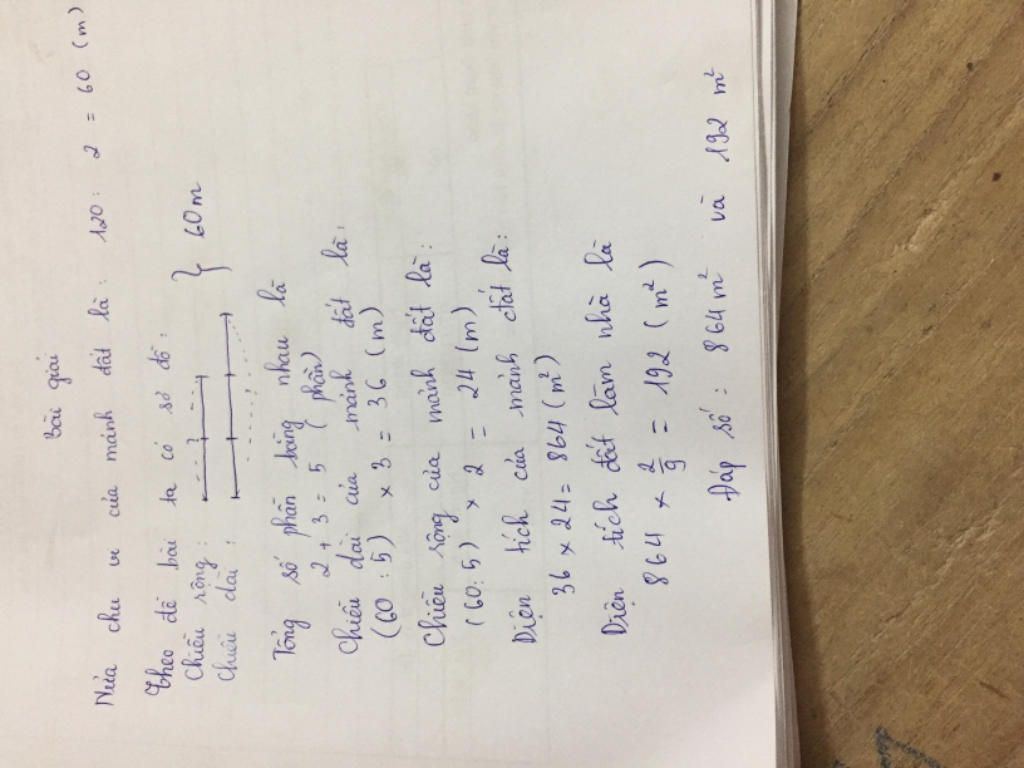 Bài giải
Nửa chu vi của mảnh đất là : 120 : 2 = 60 (m)
Theo đề bài ta có sơ đồ :
Chiều rộng : ?
Chiều dài : ? } 60m
Tổng số phần bằng nhau là
2 + 3 = 5 (phần)
Chiều dài của mảnh đất là :
(60 : 5) × 3 = 36 (m)
Chiều rộng của mảnh đất là :
(60 : 5) × 2 = 24 (m)
Diện tích của mảnh đất là :
36 × 24 = 864 (m²)
Diện tích đất làm nhà là
864 × 2/9 = 192 (m²)
Đáp số : 864 m² và 192 m²